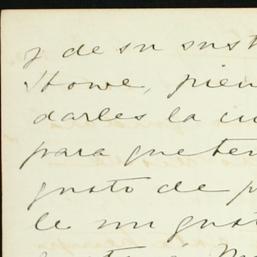 y de su sust
Howe, pien
darles la ciu
para que ten
gusto de p
le un gust